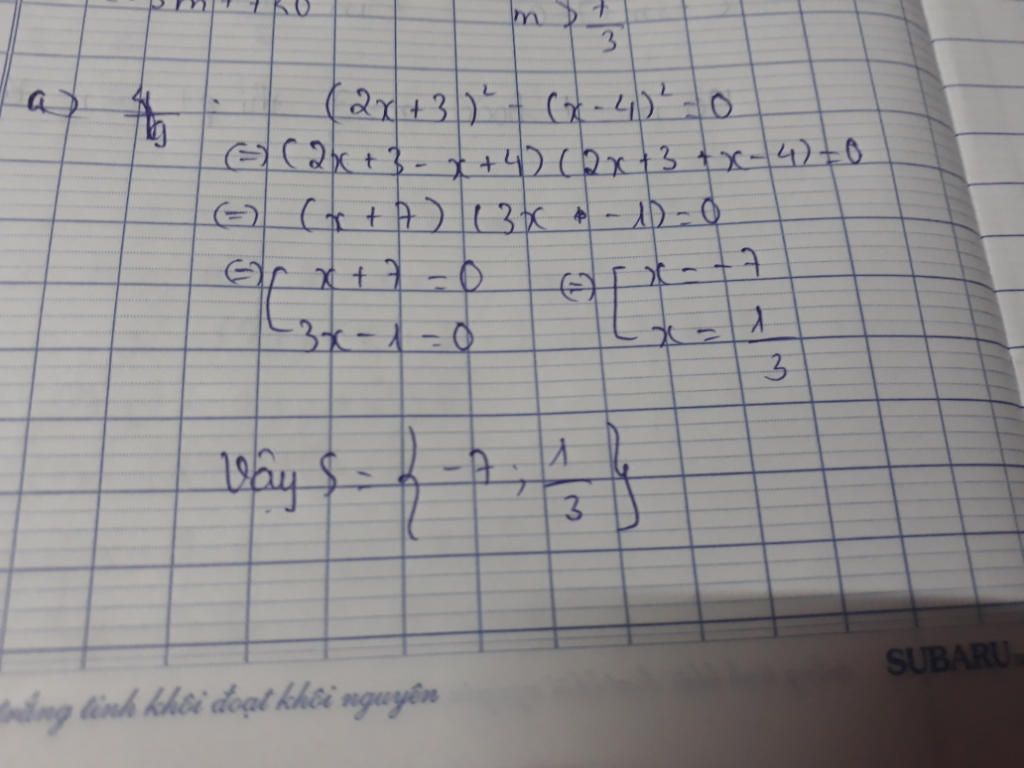 m > 7/3
a) (2x+3)² - (x-4)² = 0
(=) (2x+3-x+4)(2x+3+x-4)=0
(=) (x+7) (3x - 1)=0
(=) [ x+7 = 0 (=) [ x = -7
3x-1=0 x = 1/3
Vậy S = { -7 ; 1/3 }
SUBARU
trắng tinh khôi đoạt khôi nguyên